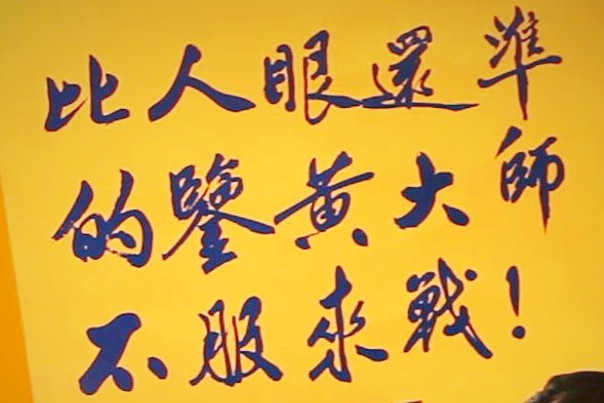 比人眼還準
的鑒黃大師
不服來戰!